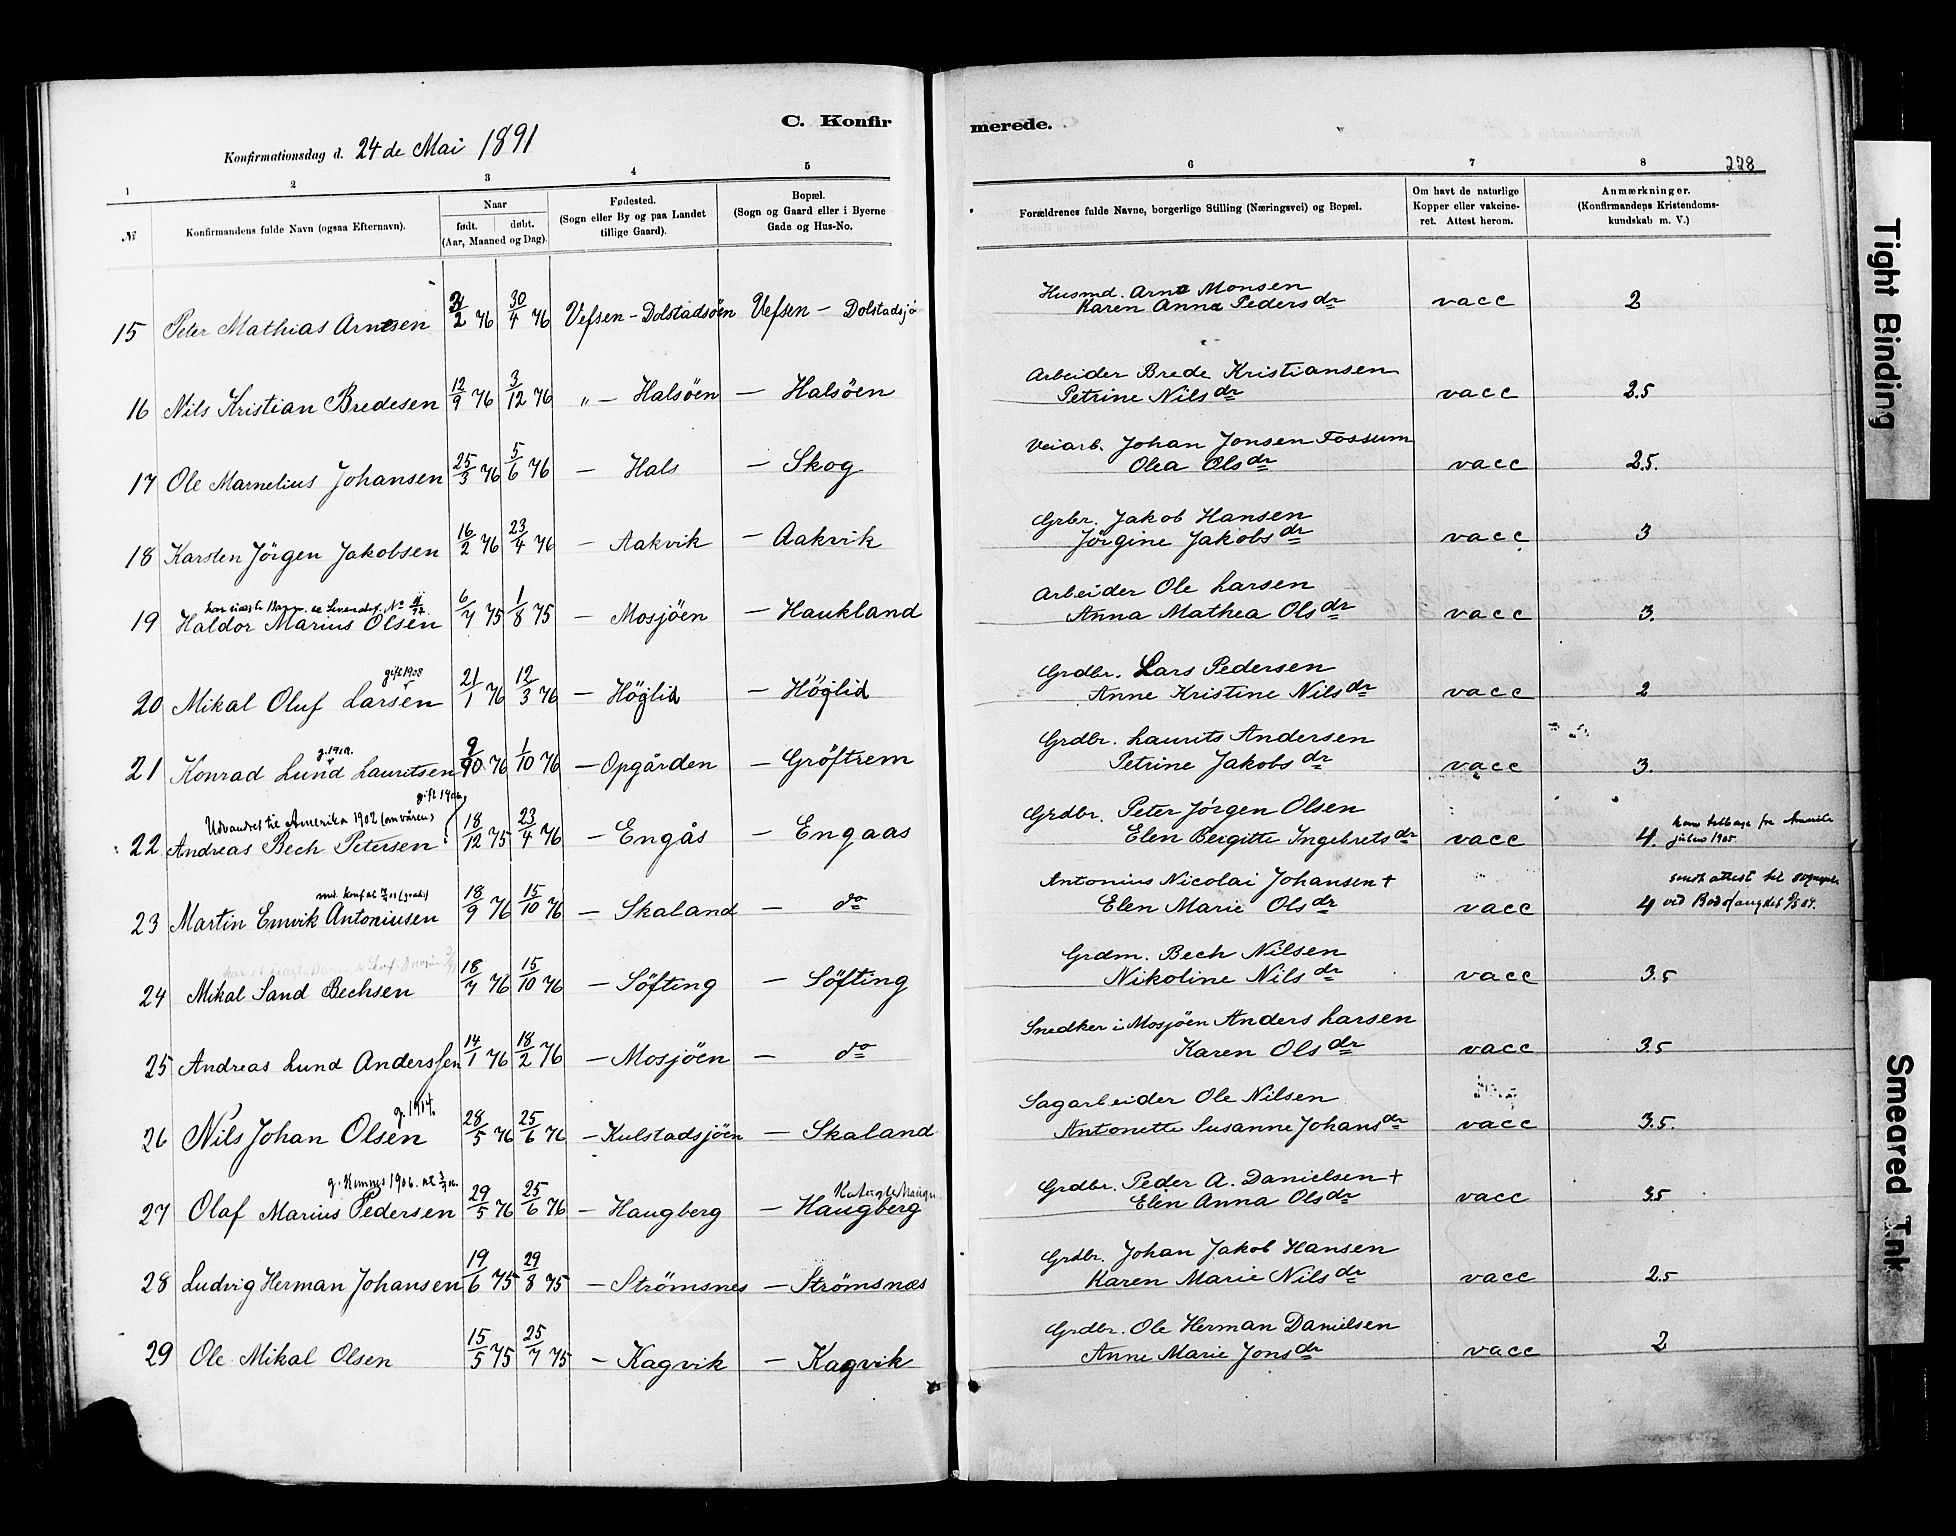 C. Konfirmerede.
Konfirmationsdag d. 24de Mai 1891
228
1 2 3 4 5 6 7 8
№
Konfirmandens fulde Navn (ogsaa Efternavn).
Naar
født. døbt.
(Aar, Maaned og Dag).
Fødested.
(Sogn eller By og paa Landet
tillige Gaard).
Bopæl.
(Sogn og Gaard eller i Byerne
Gade og Hus-No.
Forældrenes fulde Navne, borgerlige Stilling (Næringsvei) og Bopæl.
Om havt de naturlige
Kopper eller vakcine-
ret. Attest herom.
Anmærkninger.
(Konfirmandens Kristendoms-
kundskab m. V.)
15 Peter Mathias Arnesen 2/2 76 30/4 76 Vefsen - Dolstadsöen Vefsen - Dolstadsjö Husmd. Arne Monsen
Karen Anna Pedersdr vacc 2
16 Nils Kristian Bredesen 12/9 76 3/12 76 " - Halsöen - Halsöen Arbeider Brede Kristiansen
Petrine Nilsdr vacc 2.5
17 Ole Marnelius Johansen 25/3 76 5/6 76 - Hals - Skog Veiarb. Johan Jonsen Fossum
Olea Olsdr vacc 2.5.
18 Karsten Jörgen Jakobsen 16/2 76 23/4 76 - Aakvik - Aakvik Grbr. Jakob Hansen
Jörgine Jakobsdr vacc 3
19 Haldor Marius Olsen 6/7 75 1/8 75 - Mosjöen - Haukland Arbeider Ole Larsen
Anna Mathea Olsdr vacc 3.
gift 1908
20 Mikal Oluf Larsen 21/1 76 12/3 76 - Höglid - Höglid Grdbr. Lars Pedersen
Anne Kristine Nilsdr vacc 2
21 Konrad Lund Lauritsen 76 1/10 76 - Opgården - Gröftrem Grdbr. Laurits Andersen
Petrine Jakobsdr vacc 3.
Udvandret til Amerika 1902 (om våren)
22 Andreas Bech Petersen 18/12 75 23/4 76 - Engås - Engaas Grdbr. Peter Jörgen Olsen
Elen Bergitte Ingebretsdr vacc 4. kom tilbage fra Amerika
julen 1905.
23 Martin Emvik Antoniusen 18/9 76 15/10 76 - Skaland - do Antonius Nicolai Johansen +
Elen Marie Olsdr vacc 4 sendt attest til
ved
24 Mikal Sand Bechsen 18/7 76 15/10 76 - Söfting - Söfting Grdm. Bech Nilsen
Nikoline Nilsdr vacc 3.5
25 Andreas Lund Anderssen 14/1 76 18/2 76 - Mosjöen - do Snedker i Mosjöen Anders Larsen
Karen Olsdr vacc 3.5
g. 1914.
26 Nils Johan Olsen 28/5 76 25/6 76 - Kulstadsjöen - Skaland Sagarbeider Ole Nilsen
Antonette Susanne Johansdr vacc 3.5.
27 Olaf Marius Pedersen 29/5 76 25/6 76 - Haugberg - Haugberg Grdbr. Peder A. Danielsen +
Elen Anna Olsdr vacc 3.5
28 Ludvig Herman Johansen 19/6 75 29/8 75 - Strömsnes - Strömsnæs Grdbr. Johan Jakob Hansen
Karen Marie Nilsdr vacc 2.5
29 Ole Mikal Olsen 15/5 75 25/7 75 - Kagvik - Kagvik Grdbr. Ole Herman Danielsen
Anne Marie Jonsdr vacc 2
Tight Binding
Smeared Ink